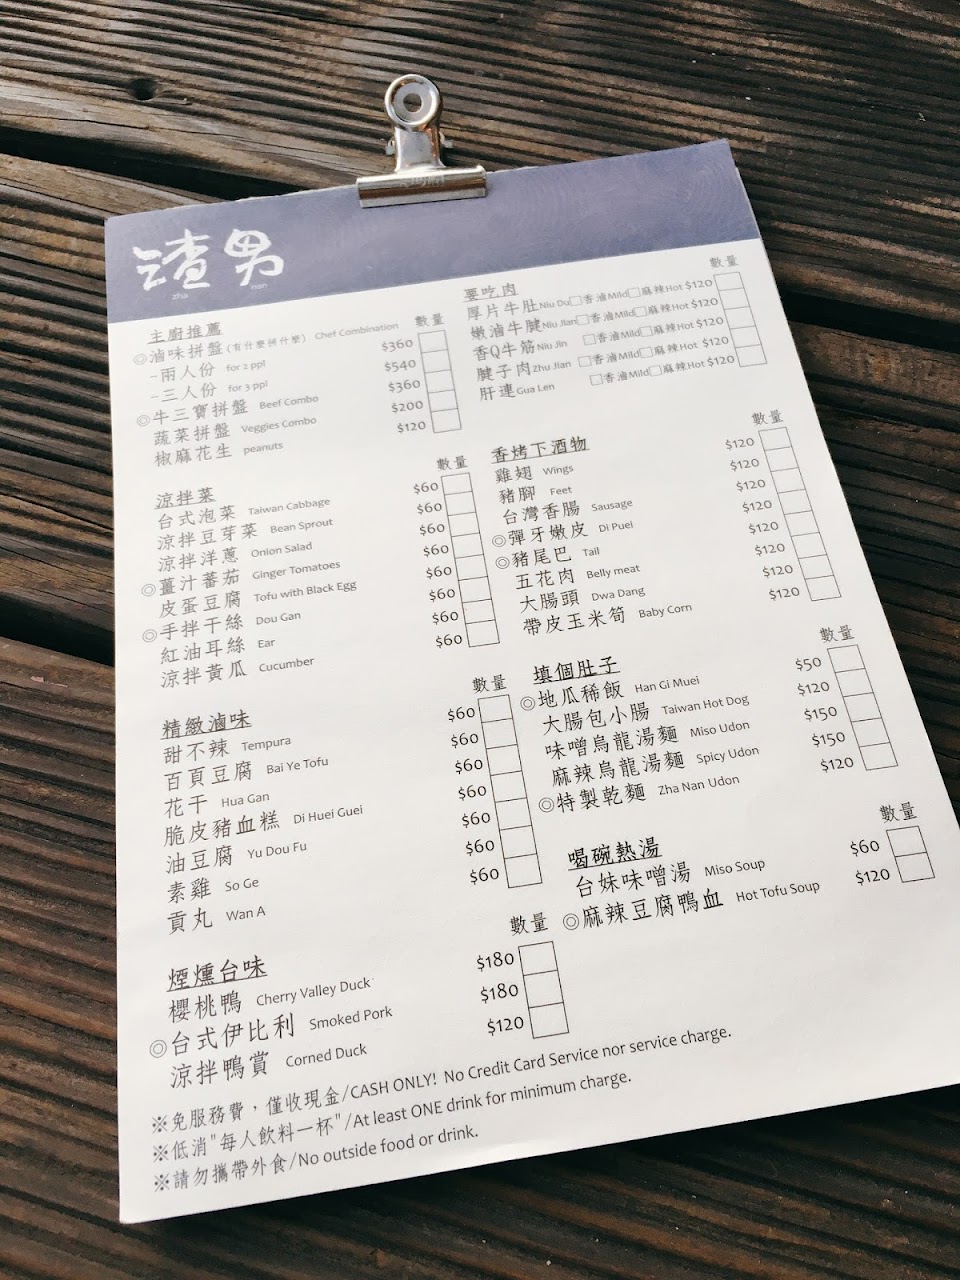 渣男
zha nan
主廚推薦 數量
◎滷味拼盤(有什麼拼什麼) Chef Combination
-兩人份 for 2 ppl $360
-三人份 for 3 ppl $540
◎牛三寶拼盤 Beef Combo $360
蔬菜拼盤 Veggies Combo $200
椒麻花生 peanuts $120
涼拌菜 數量
台式泡菜 Taiwan Cabbage $60
涼拌豆芽菜 Bean Sprout $60
涼拌洋蔥 Onion Salad $60
◎薑汁蕃茄 Ginger Tomatoes $60
皮蛋豆腐 Tofu with Black Egg $60
◎手拌干絲 Dou Gan $60
紅油耳絲 Ear $60
涼拌黃瓜 Cucumber $60
精緻滷味 數量
甜不辣 Tempura $60
百頁豆腐 Bai Ye Tofu $60
花干 Hua Gan $60
脆皮豬血糕 Di Huei Guei $60
油豆腐 Yu Dou Fu $60
素雞 So Ge $60
貢丸 Wan A $60
煙燻台味 數量
櫻桃鴨 Cherry Valley Duck $180
◎台式伊比利 Smoked Pork $180
涼拌鴨賞 Corned Duck $120
要吃肉 數量
厚片牛肚Niu Du□香滷Mild□麻辣Hot $120
嫩滷牛腱Niu Jian□香滷Mild□麻辣Hot $120
香Q牛筋Niu Jin □香滷Mild□麻辣Hot $120
腱子肉Zhu Jian □香滷Mild□麻辣Hot $120
肝連Gua Len □香滷Mild□麻辣Hot $120
香烤下酒物 數量
雞翅 Wings $120
豬腳 Feet $120
台灣香腸 Sausage $120
◎彈牙嫩皮 Di Puei $120
◎豬尾巴 Tail $120
五花肉 Belly meat $120
大腸頭 Dwa Dang $120
帶皮玉米筍 Baby Corn $120
填個肚子 數量
◎地瓜稀飯 Han Gi Muei $50
大腸包小腸 Taiwan Hot Dog $120
味噌烏龍湯麵 Miso Udon $150
麻辣烏龍湯麵 Spicy Udon $150
◎特製乾麵 Zha Nan Udon $120
喝碗熱湯 數量
台妹味噌湯 Miso Soup $60
◎麻辣豆腐鴨血 Hot Tofu Soup $120
※免服務費，僅收現金/CASH ONLY! No Credit Card Service nor service charge.
※低消"每人飲料一杯"/At least ONE drink for minimum charge.
※請勿攜帶外食/No outside food or drink.